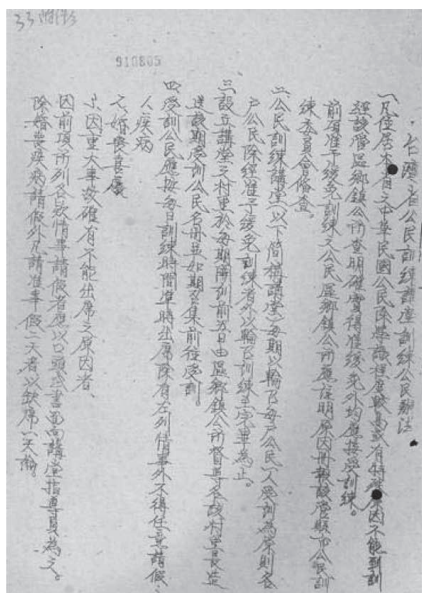 33附件3
910805
台灣省公民訓練講堂訓練公民辦法
一、凡住居本省之中華民國公民除學識程度較高或有特殊原因不能到訓
經該管區鄉鎮公所查明確實得准緩免外均應接受訓練。
前項准予緩免訓練之公民區鄉鎮公所應註明原因冊報該管縣市公民訓
練委員會備查。
二、公民訓練講堂（以下簡稱講堂）每期以輪召每戶公民一人受訓為原則各
戶公民除經准予緩免訓練者外以輪召訓練至完畢為止。
三、設立講堂之村里於每期開訓前五日由區鄉鎮公所督導各該村里長造
送該期應訓公民名冊並如期召集前往受訓。
四、受訓公民應按每日訓練時間準時出席除有左列情事外不得任意請假：
1、疾病
2、婚喪喜慶
3、因重大事故確有不能出席之原因者、
因前項所列各款情事請假者應以口頭或書面向講堂指導員為之。
除婚喪疾病請假外凡請准事假一天者以缺席一天論。